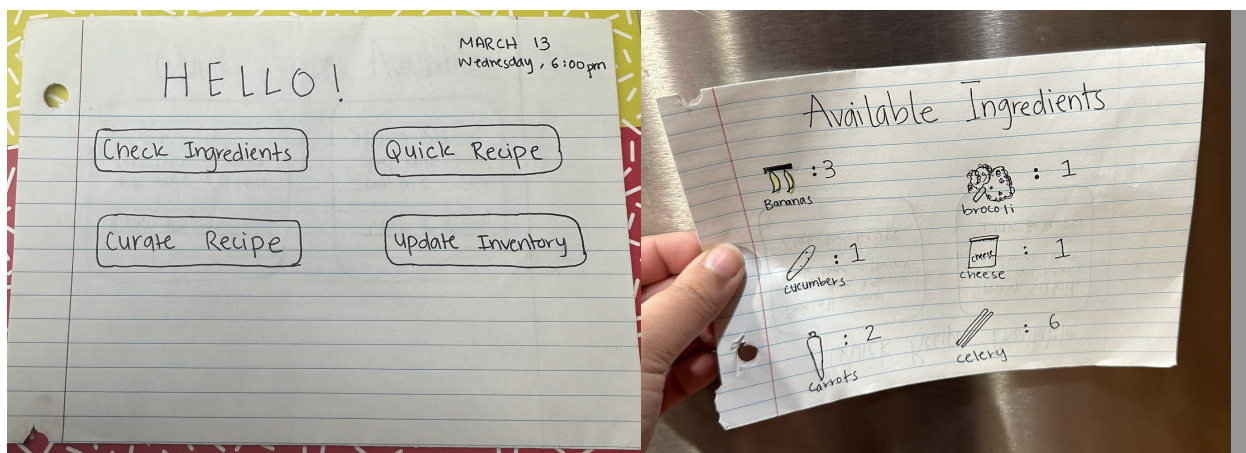 MARCH 13
Wednesday, 6:00pm
HELLO!
Check Ingredients
Quick Recipe
Curate Recipe
Update Inventory
Available Ingredients
:3
Bananas
: 1
brocoli
: 1
cucumbers
cheese
: 1
cheese
: 2
carrots
: 6
celery